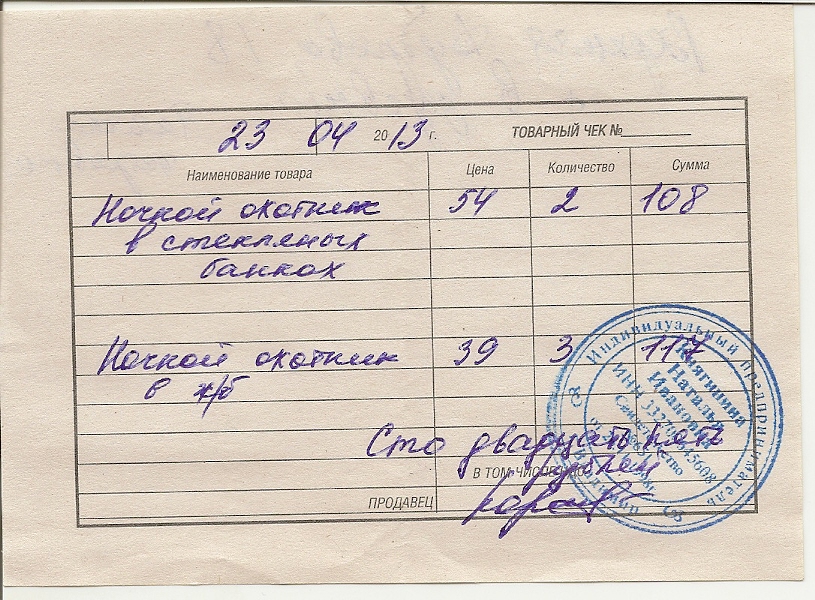 23 04 2013 г. ТОВАРНЫЙ ЧЕК №
Наименование товара Цена Количество Сумма
Ночной охотник 54 2 108
в стекляных
банках
Ночной охотник 39 3 117
в ж/б
Сто двадцать пять
рублей
В ТОМ ЧИСЛЕ
ПРОДАВЕЦ
Индивидуальный предприниматель
Наталья
Ивановна
ИНН
Свидетельство
Владимир